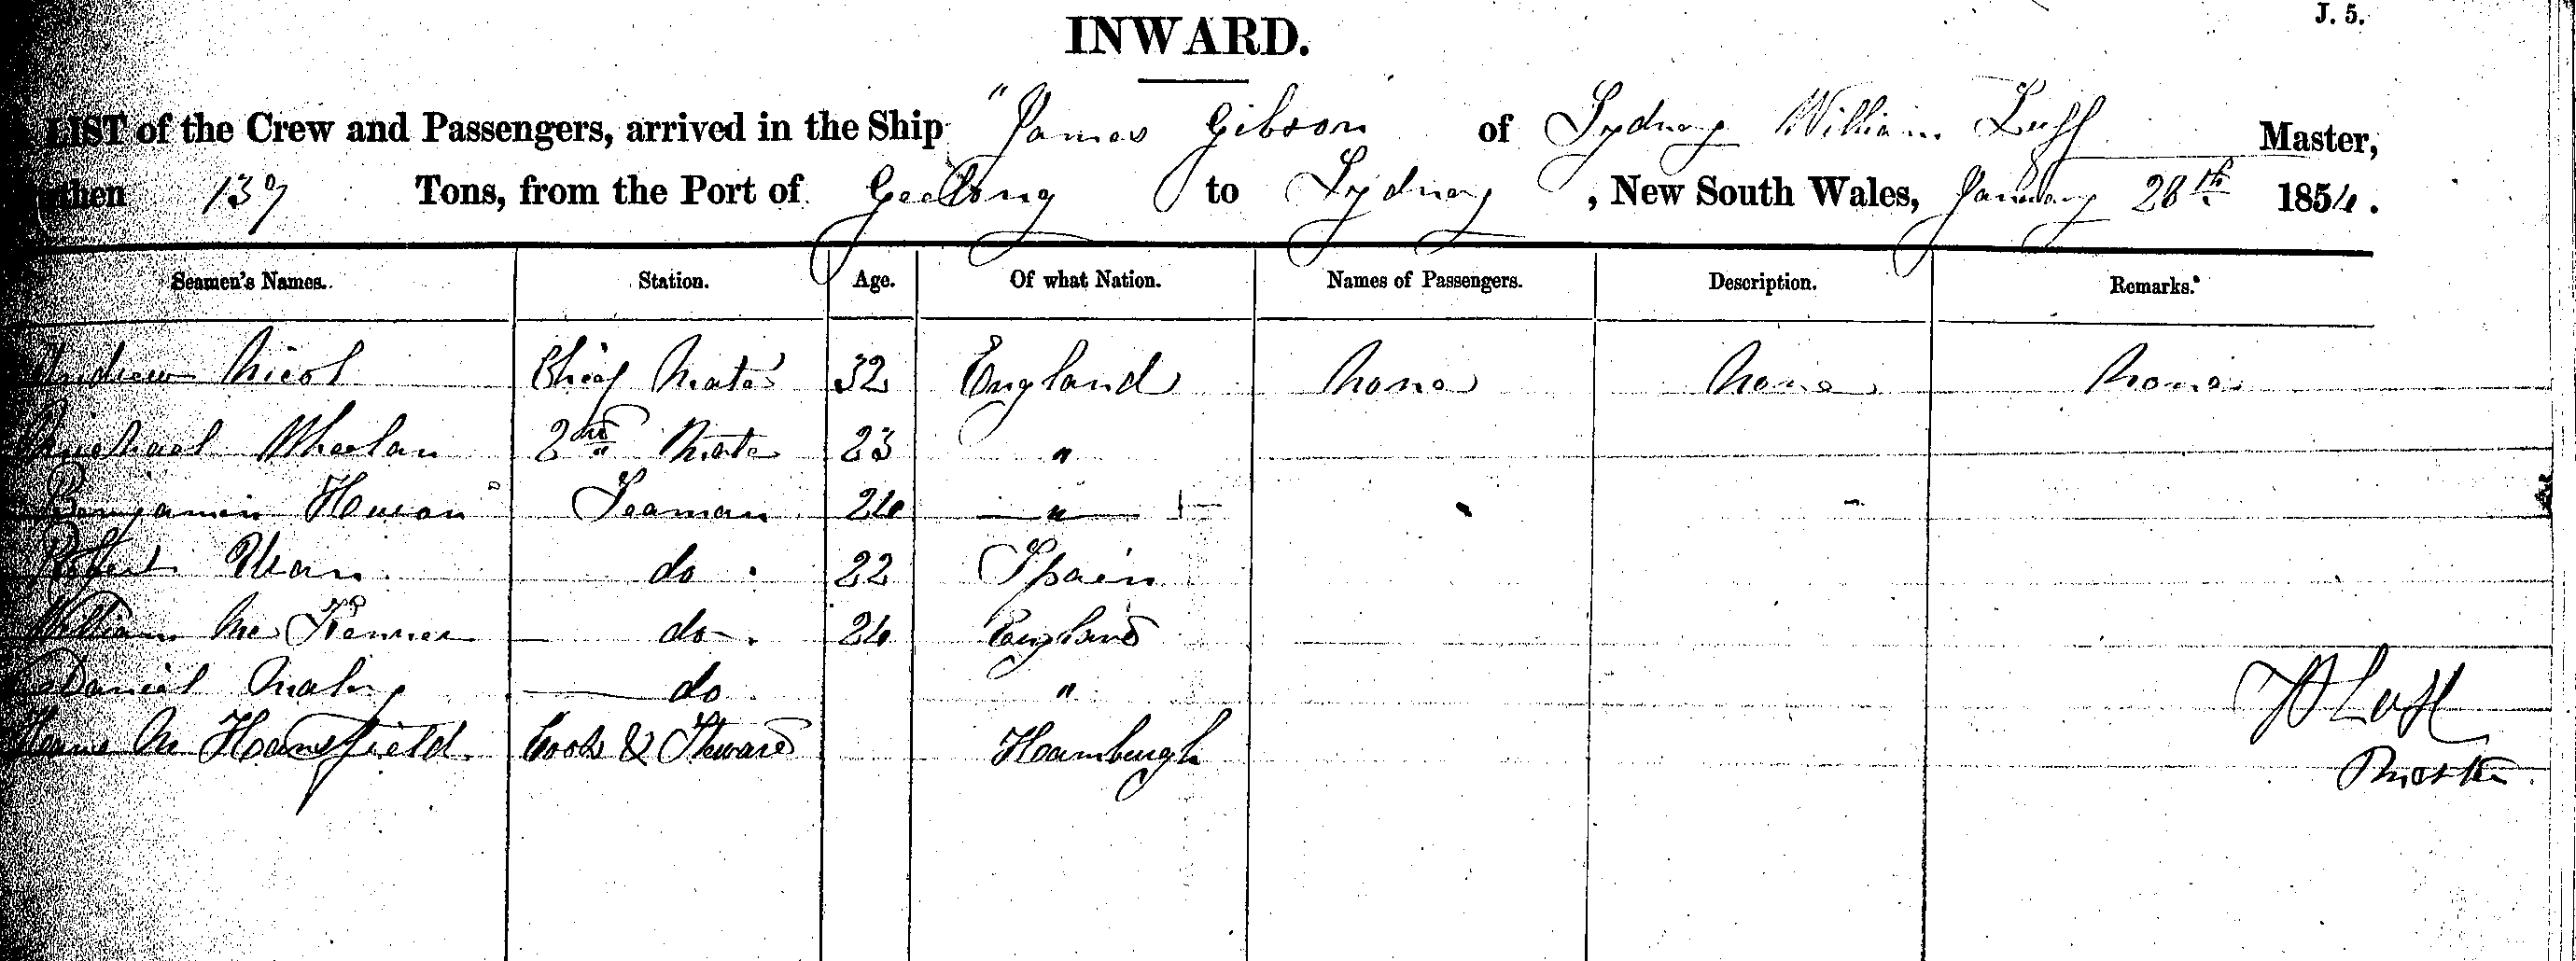 J. 5.
INWARD.
LIST of the Crew and Passengers, arrived in the Ship "James Gibson of Sydney William Luff Master,
then 139 Tons, from the Port of Geelong to Sydney, New South Wales, January 28th 1854.
Seamen's Names. Station. Age. Of what Nation. Names of Passengers. Description. Remarks.
Andrew Nicol Chief Mate 32 England None None None
Michael Whelan 2nd Mate 23 "
Benjamin Seaman 24 "
Robert do 22 Spain
William Mc do. 24 England
Daniel do. "
Cook & Steward Hamburgh
W Luff
Master.